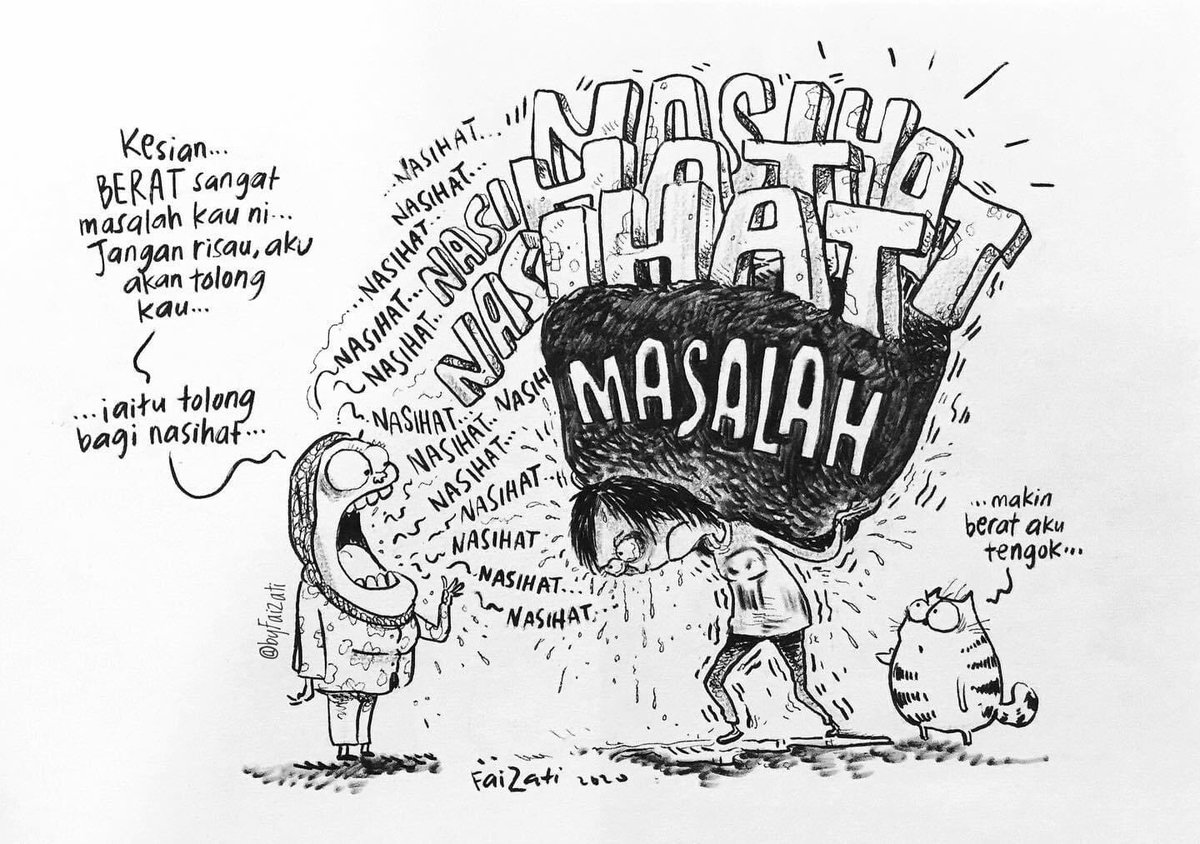 Kesian...
BERAT sangat
masalah kau ni...
Jangan risau, aku
akan tolong
kau...
...iaitu tolong
bagi nasihat...
...NASIHAT...
NASIHAT...
NASIHAT...
...NASIHAT...
NASIHAT...
NASIHAT..
NASIHAT
NASIHAT
NASIHAT
NASIHAT...
NASIH
NASIHAT..
NASIHAT...
NASIHAT...
NASIHAT
NASIHAT...
NASIHAT...
MASALAH
...makin
berat aku
tengok...
@byFaizati
FaiZati 2020